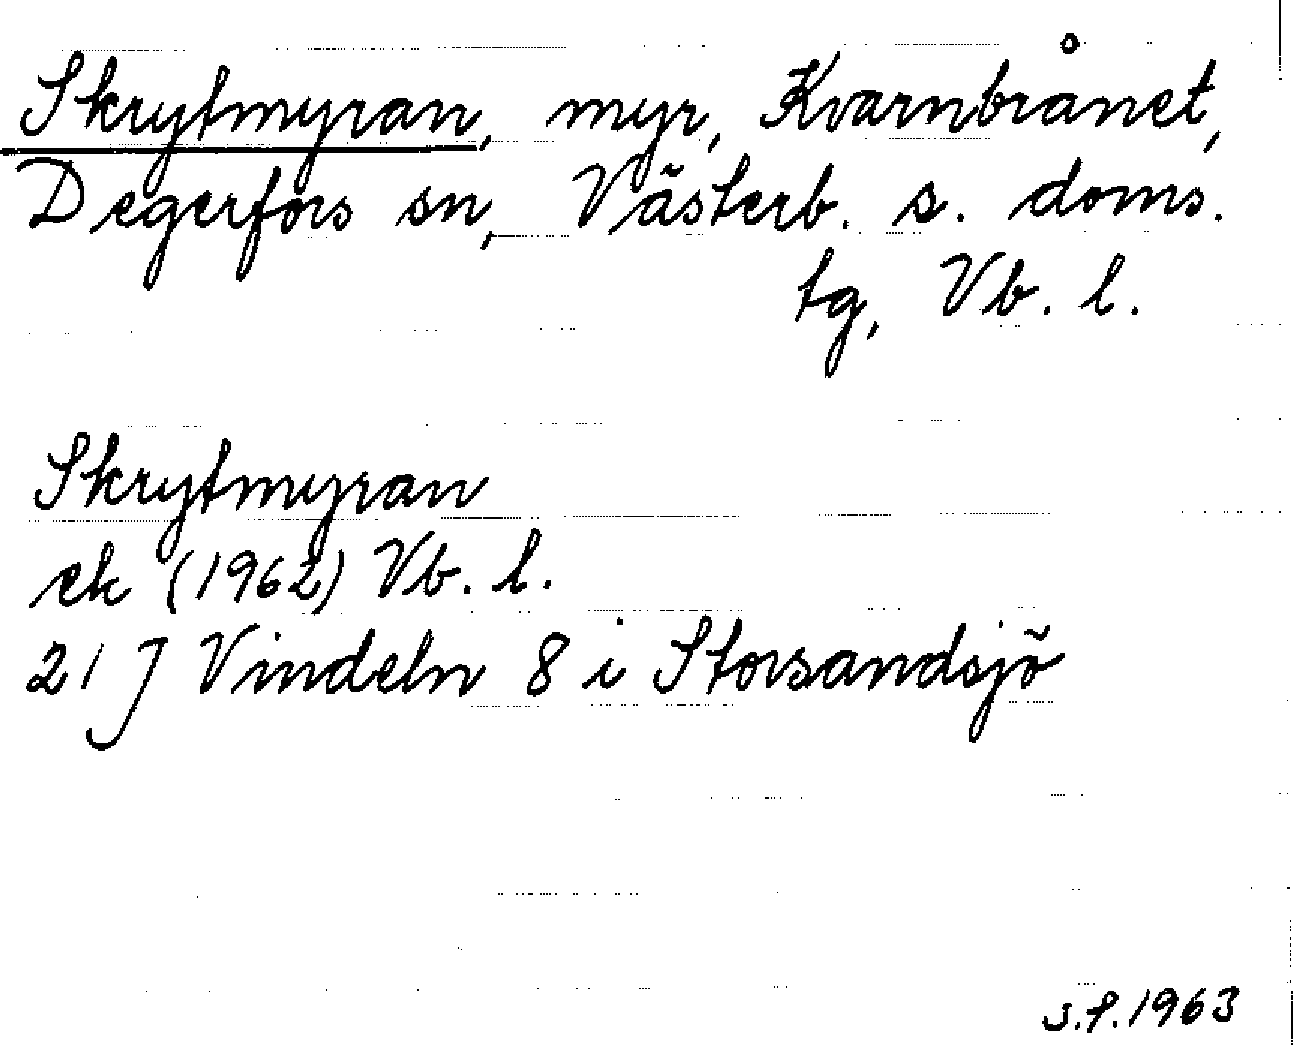 Skrytmyran, myr, Kvarnbrånet,
Degerfors sn, Västerb. s. doms.
tg, Vb. l.
Skrytmyran
ek (1962) Vb. l.
21 J Vindeln 8 i Storsandsjö
s.f. 1963